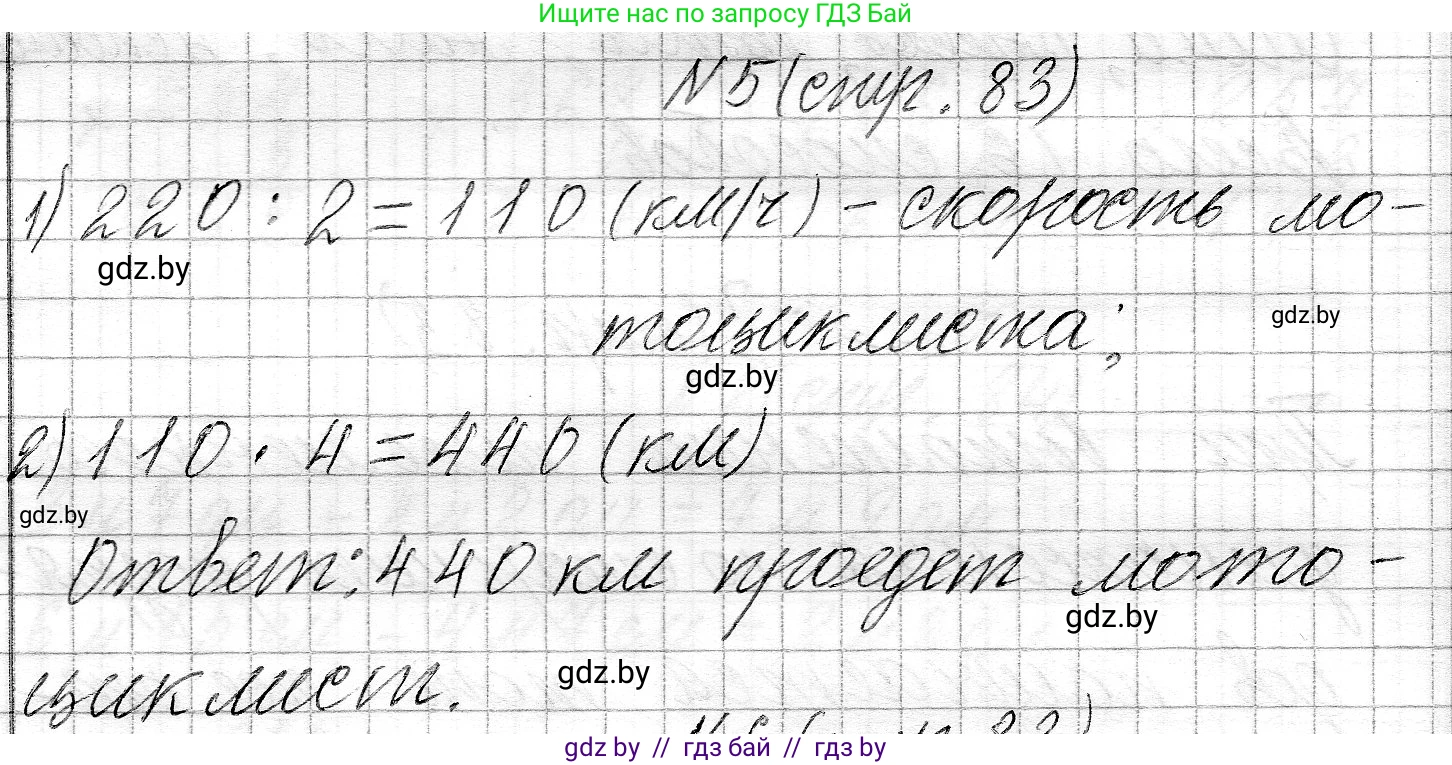 Ищите нас по запросу ГДЗ Бай
N5 (стр. 83)
1) 220 : 2 = 110 (км/ч) - скорость мо-
gdz.by
тоциклиста;
gdz.by
gdz.by
2) 110 · 4 = 440 (км)
gdz.by
Ответ: 440 км проедет мото-
gdz.by
циклист.
gdz.by
gdz.by // гдз бай // гдз by